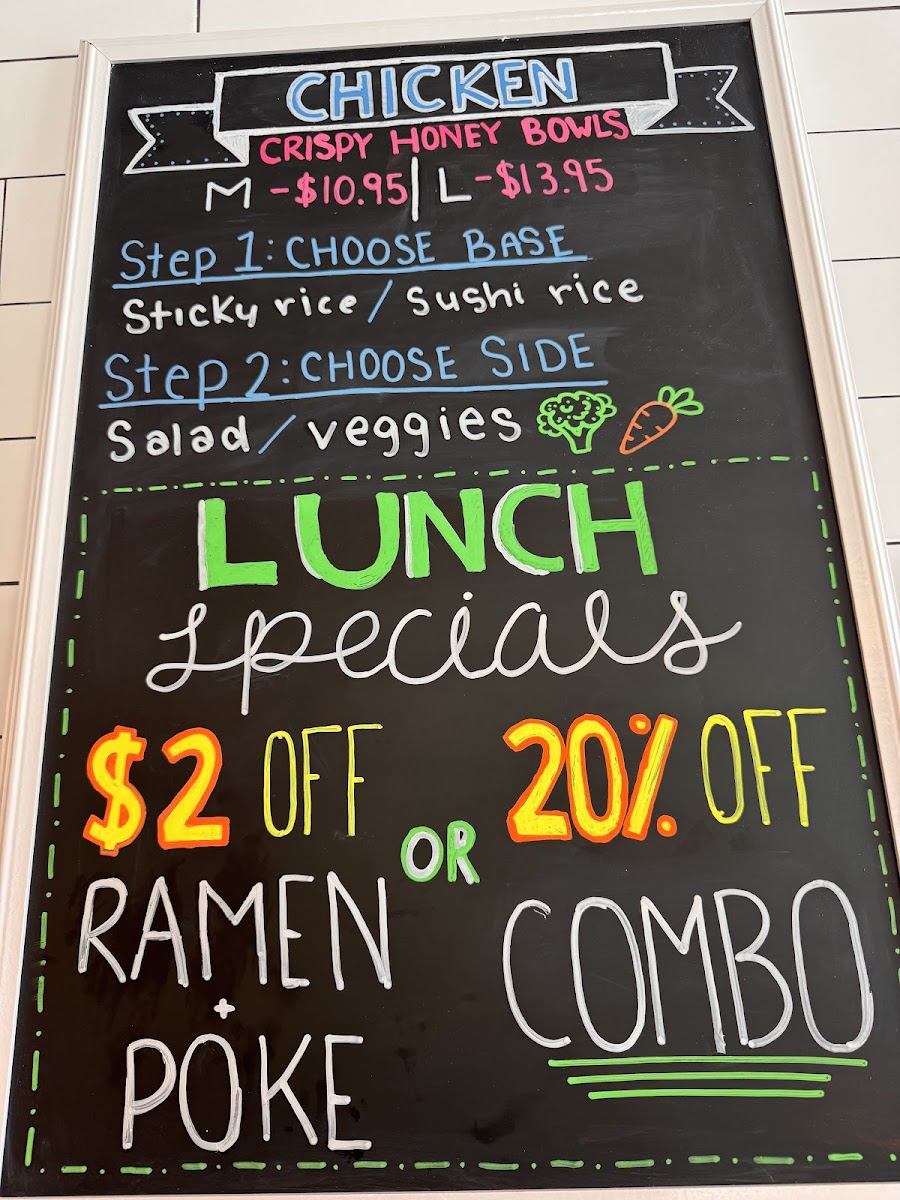 CHICKEN
CRISPY HONEY BOWLS
M -$10.95 | L -$13.95
Step 1: CHOOSE BASE
Sticky rice / Sushi rice
Step 2: CHOOSE SIDE
Salad / veggies
LUNCH
specials
$2 OFF
RAMEN
+
POKE
OR
20% OFF
COMBO